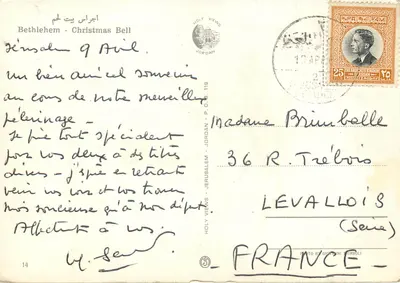 اجراس بيت لحم
Bethlehem - Christmas Bell
Jérusalem 9 Avril.
Un bien amical souvenir
au cours de notre merveilleux
pélerinage -
Je prie tout spécialement
pour vous deux à des titres
divers - j'espère en retrant
venir vous voir et vous trouver
moins soucieuse qu'à mon départ.
Affectueux à vous.
14
HOLY VIEWS - JERUSALEM - JORDAN - P.O.B.
HOLY VIEWS
25
٢٥
Madame Brimbelle
36 R. Trébois
LEVALLOIS
(Seine)
FRANCE